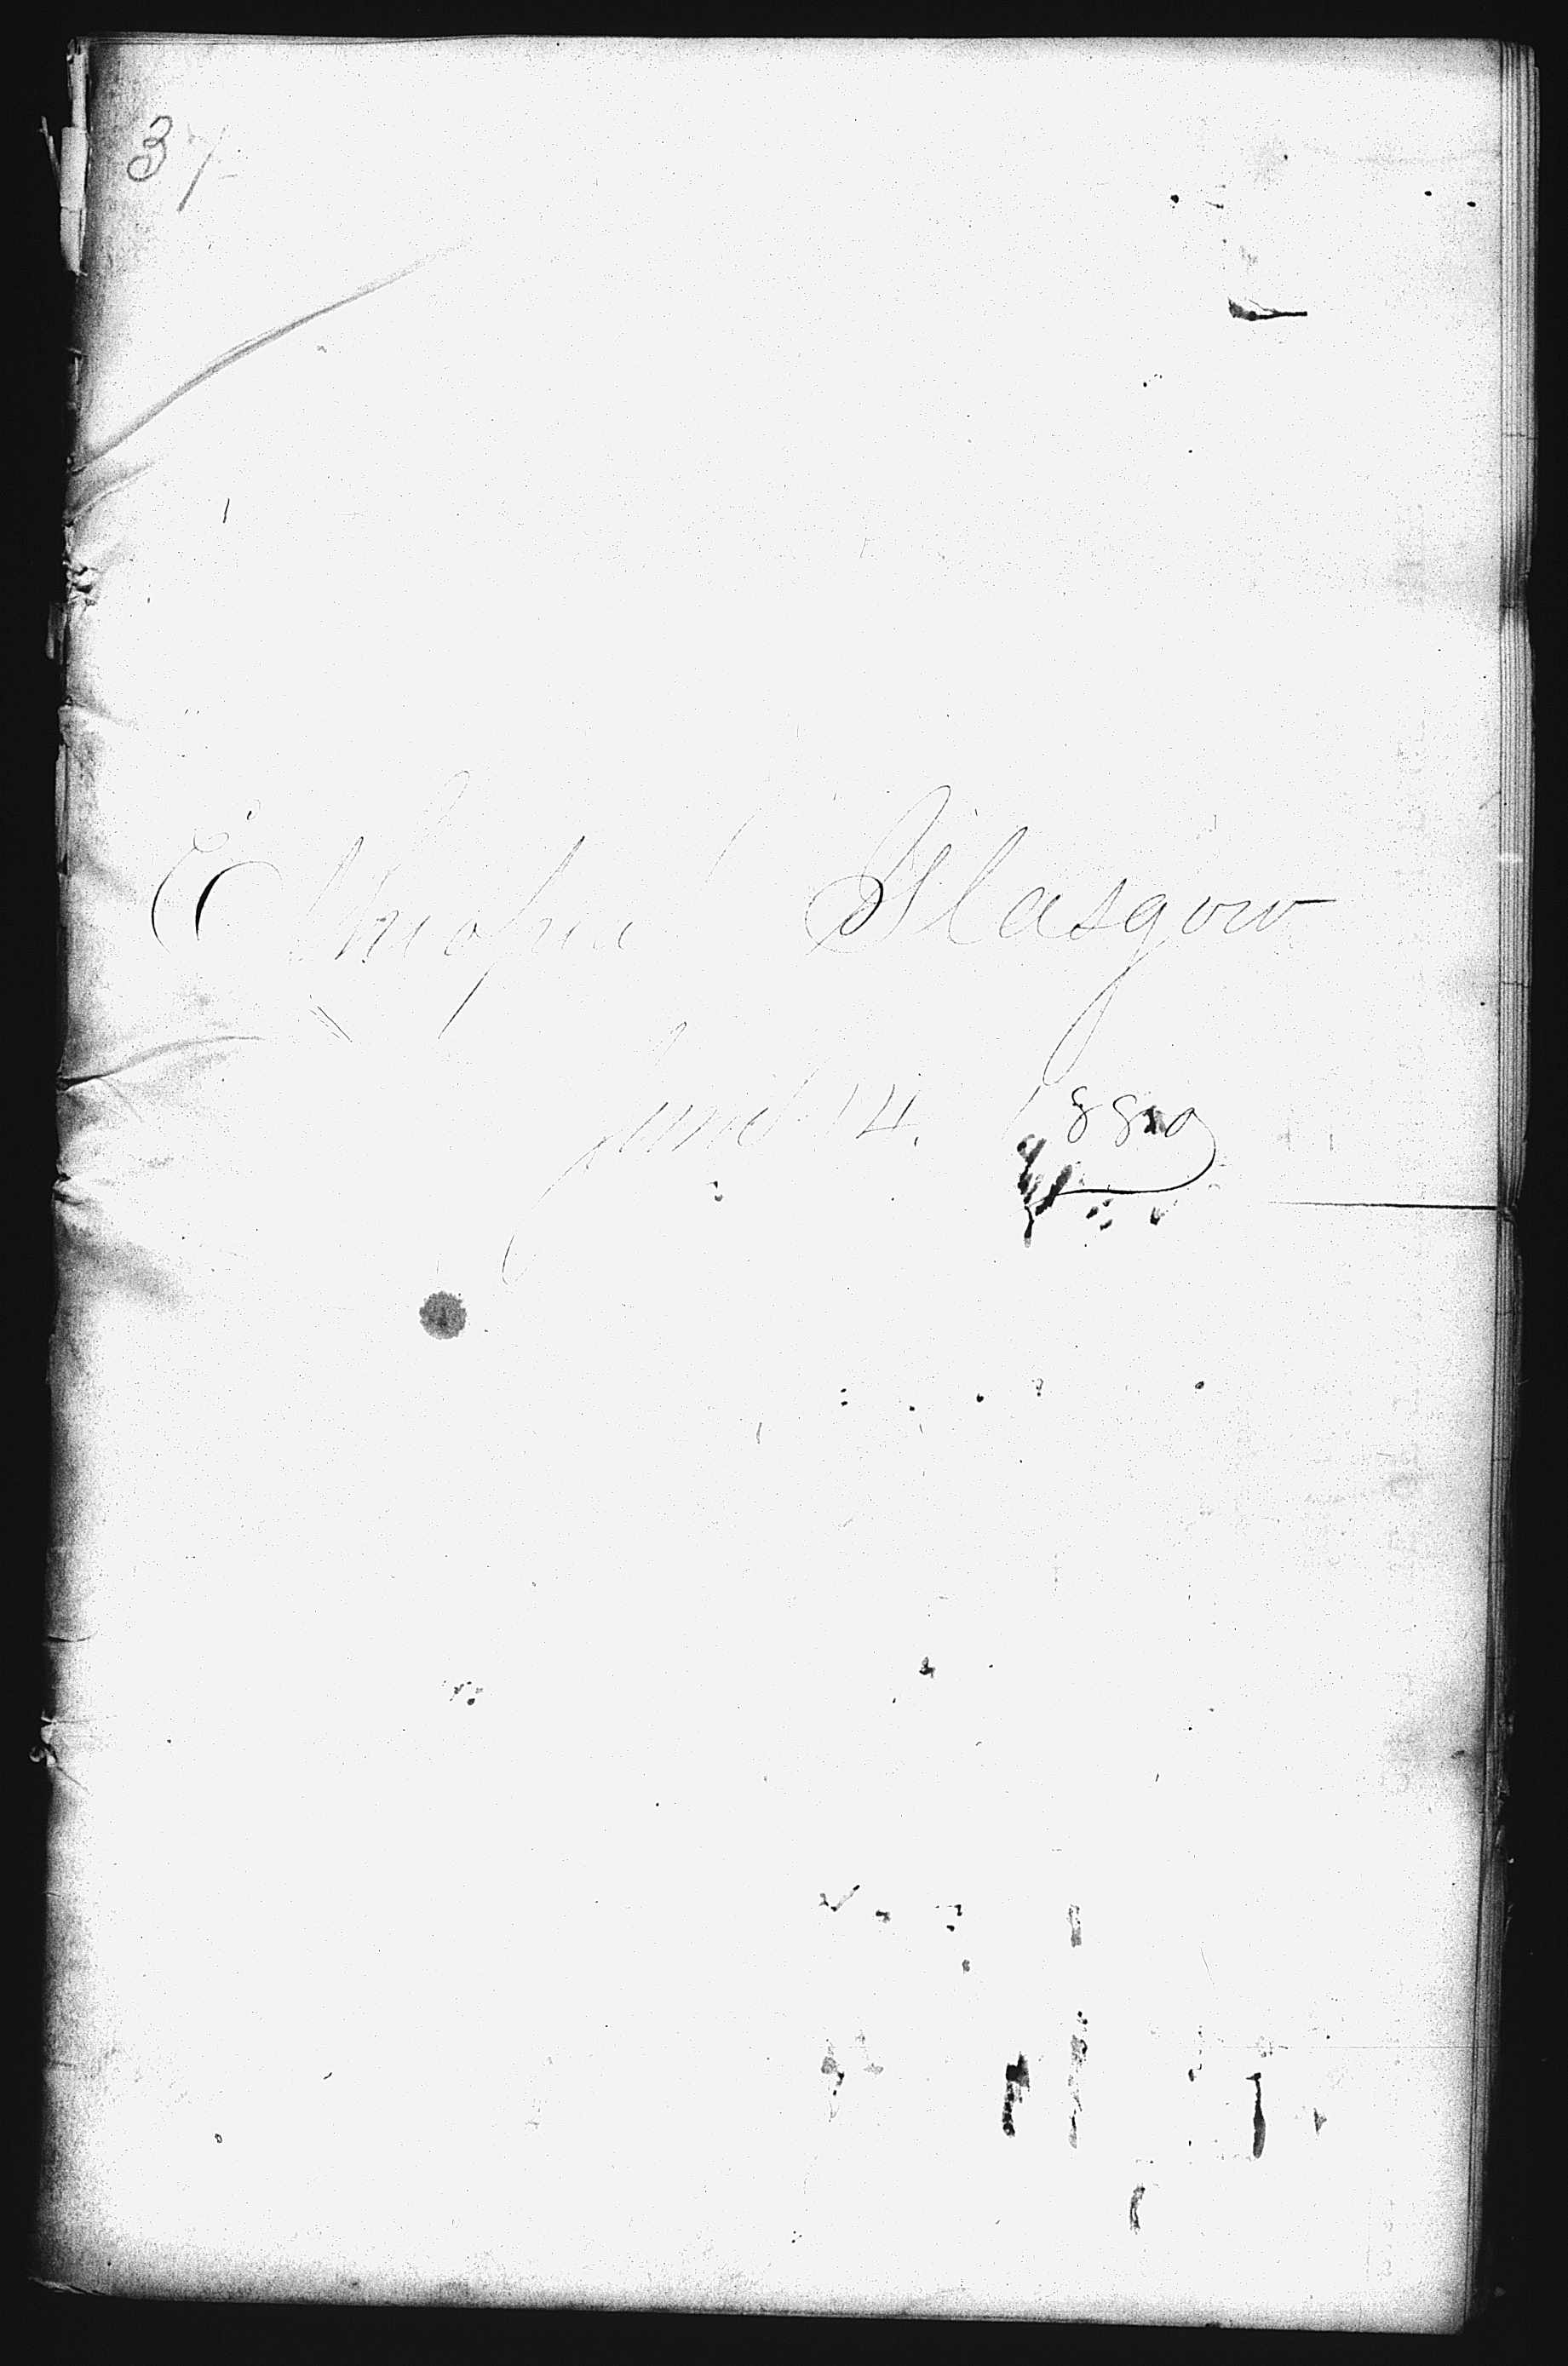 37
Ethiopia Glasgow
June 14. 1880